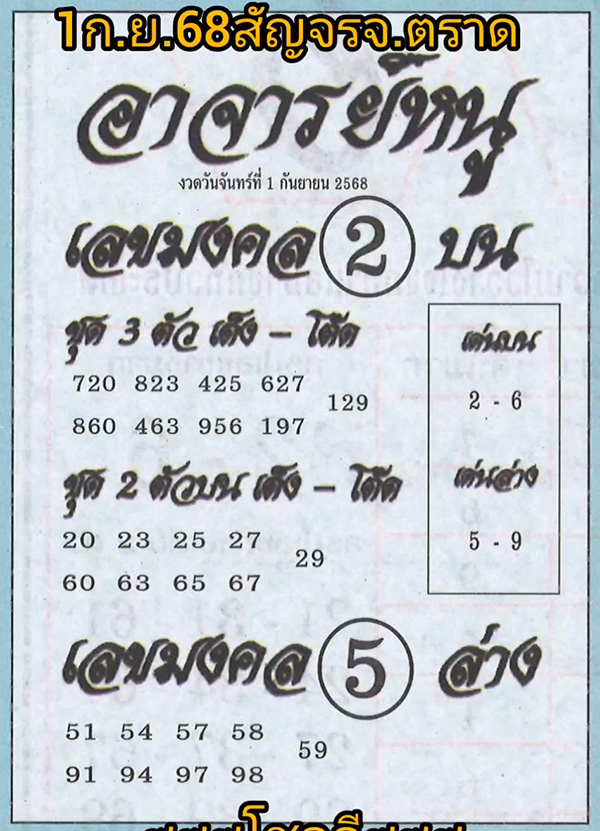 1ก.ย.68สัญจรจ.ตราด
อาจารย์หนู
งวดวันจันทร์ที่ 1 กันยายน 2568
เลขมงคล 2 บน
ชุด 3 ตัว เต็ง - โต๊ด
720 823 425 627
129
860 463 956 197
เด่นบน
2 - 6
ชุด 2 ตัวบน เต็ง - โต๊ด
20 23 25 27
29
60 63 65 67
เด่นล่าง
5 - 9
เลขมงคล 5 ล่าง
51 54 57 58
59
91 94 97 98